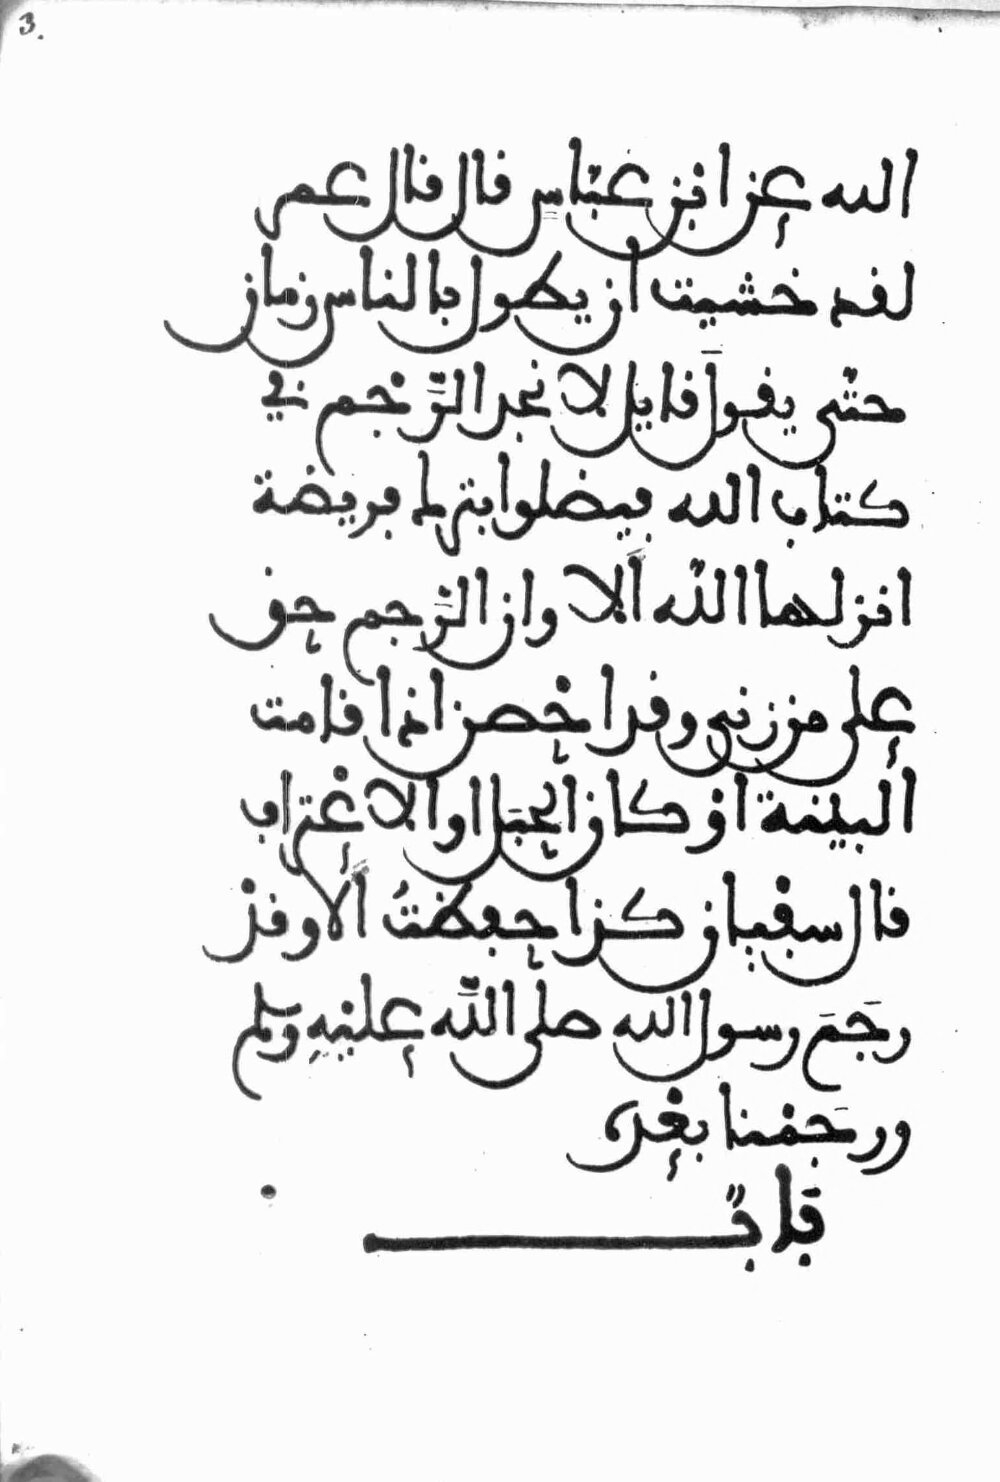 3.
الله عن ابن عبّاس قال قال عمر
لقد خشيت ان يطول بالناس زمان
حتّى يقول قايل لا نجد الرّجم في
كتاب الله فيضلوا بترك فريضة
انزلها الله الا وان الرّجم حق
على من زنى وقد احصن اذا قامت
البينة اوْ كان الحبل او الاعْتراف
قال سفْيان كذا حفظتُ الا وقدْ
رجَمَ رسول الله صلى الله عليْهِ وسلم
ورجمْنا بعْده
بابٌ